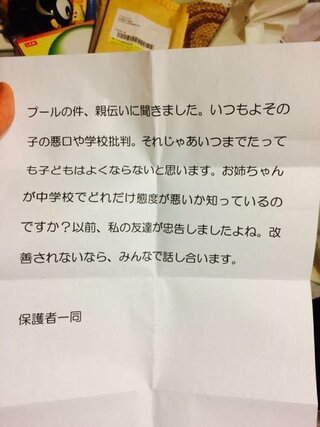 プールの件、親伝いに聞きました。いつもよその
子の悪口や学校批判。それじゃあいつまでたって
も子どもはよくならないと思います。お姉ちゃん
が中学校でどれだけ態度が悪いか知っているの
ですか？以前、私の友達が忠告しましたよね。改
善されないなら、みんなで話し合います。
保護者一同